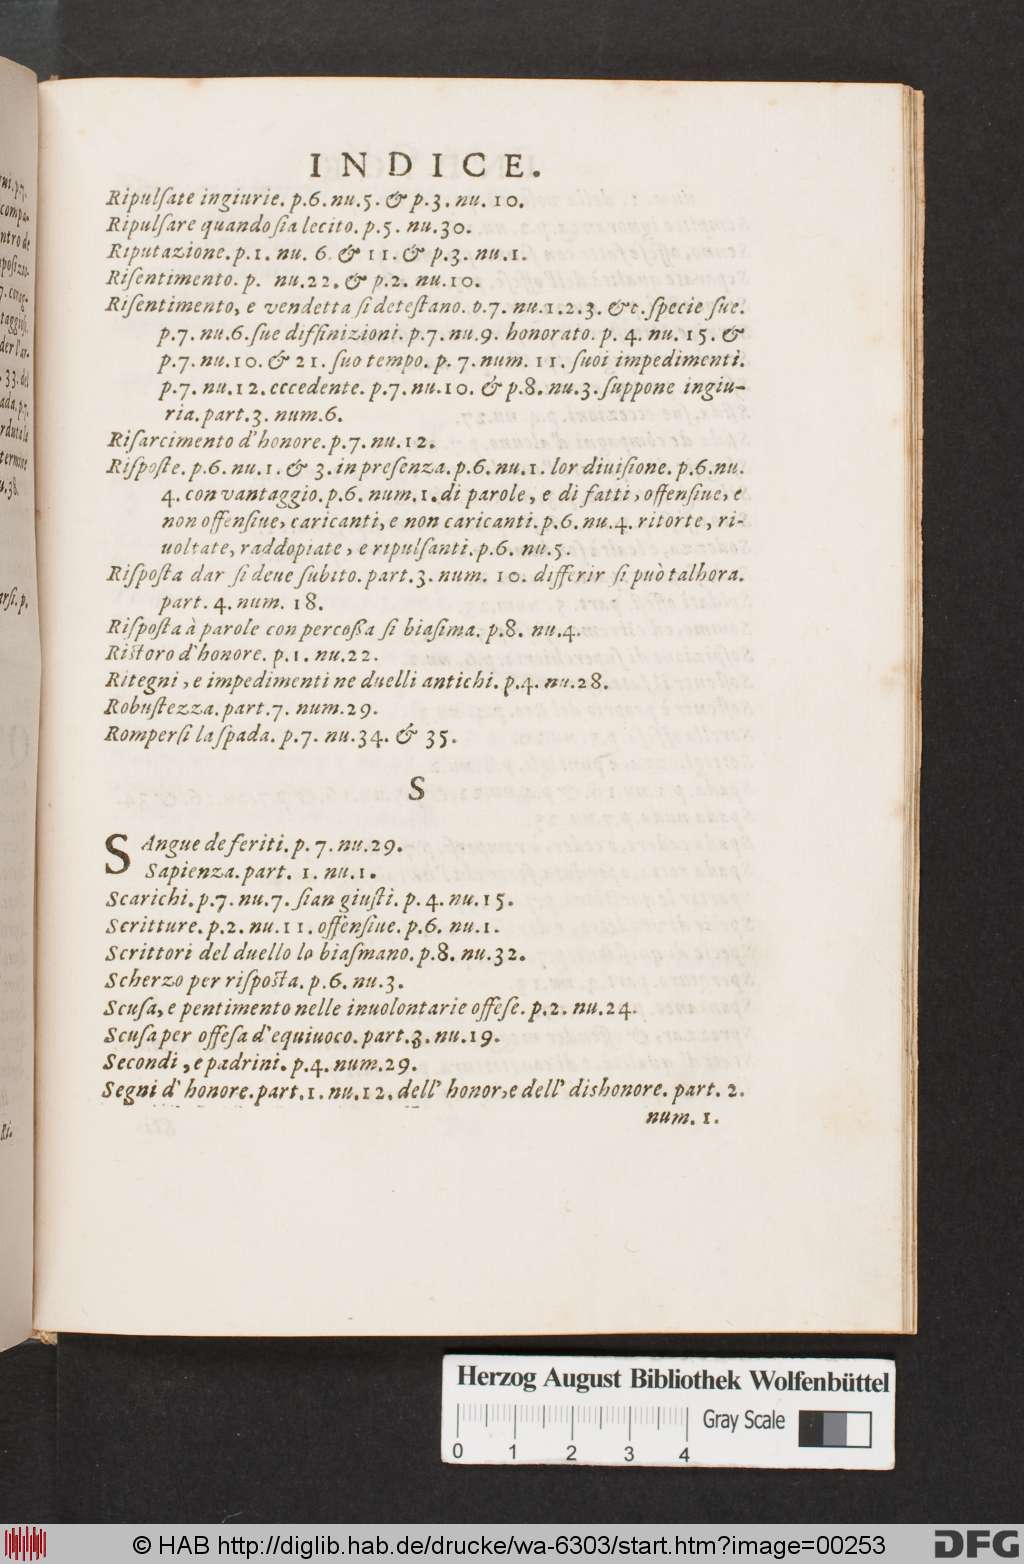 INDICE.
Ripulſate ingiurie. p.6. nu.5. & p.3. nu. 10.
Ripulſare quando ſia lecito. p.5. nu.30.
Riputazione. p.1. nu. 6. & 11. & p.3. nu.1.
Riſentimento. p. nu.22. & p.2. nu.10.
Riſentimento, e vendetta ſi deteſtano. p.7. nu.1.2.3. &c. ſpecie ſue.
p.7. nu.6. ſue diffinizioni. p.7. nu.9. honorato. p. 4. nu. 15. &
p.7. nu.10. & 21. ſuo tempo. p. 7. num. 11. ſuoi impedimenti.
p.7. nu.12. eccedente. p.7. nu.10. & p.8. nu.3. ſuppone ingiu-
ria. part.3. num.6.
Riſarcimento d'honore. p.7. nu.12.
Riſpoſte. p.6. nu.1. & 3. in preſenza. p.6. nu.1. lor diuiſione. p.6. nu.
4. con vantaggio. p.6. num.1. di parole, e di fatti, offenſiue, e
non offenſiue, caricanti, e non caricanti. p.6. nu.4. ritorte, ri-
uoltate, raddopiate, e ripulſanti. p.6. nu.5.
Riſpoſta dar ſi deue ſubito. part.3. num. 10. differir ſi può talhora.
part. 4. num. 18.
Riſpoſta à parole con percoſſa ſi biaſima. p.8. nu.4.
Riſtoro d'honore. p.1. nu.22.
Ritegni, e impedimenti ne duelli antichi. p.4. nu.28.
Robuſtezza. part.7. num.29.
Romperſi la ſpada. p.7. nu.34. & 35.
S
SAngue de feriti. p. 7. nu.29.
Sapienza. part. 1. nu.1.
Scarichi. p.7. nu.7. ſian giuſti. p. 4. nu.15.
Scritture. p.2. nu.11. offenſiue. p.6. nu.1.
Scrittori del duello lo biaſmano. p.8. nu.32.
Scherzo per riſpoſta. p.6. nu.3.
Scuſa, e pentimento nelle inuolontarie offeſe. p.2. nu.24.
Scuſa per offeſa d'equiuoco. part.3. nu.19.
Secondi, e padrini. p.4. num.29.
Segni d'honore. part.1. nu.12. dell'honor, e dell'dishonore. part. 2.
num. 1.
Herzog August Bibliothek Wolfenbüttel
Gray Scale
0 1 2 3 4
© HAB http://diglib.hab.de/drucke/wa-6303/start.htm?image=00253
DFG